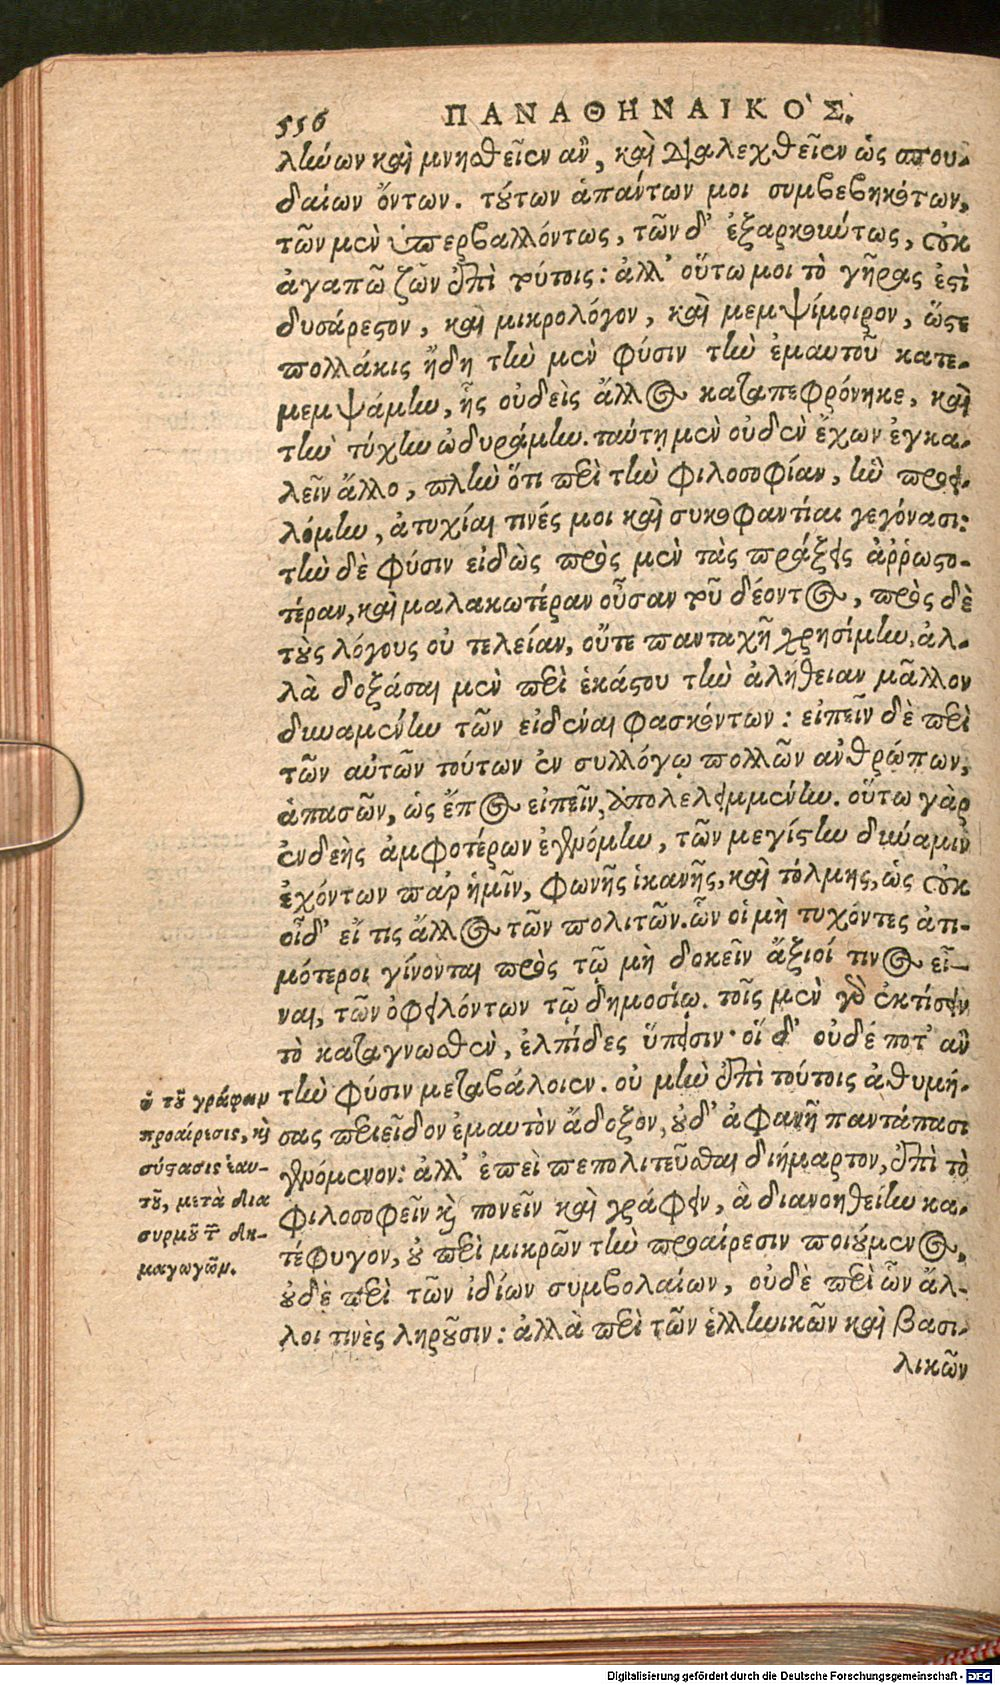 556 ΠΑΝΑΘΗΝΑΙΚΟ`Σ.
λήνων καὶ μνησθεῖεν ἂν, καὶ διαλεχθεῖεν ὡς σπου-
δαίων ὄντων. τούτων ἁπάντων μοι συμβεβηκότων,
τῶν μὲν ὑπερβαλλόντως, τῶν δ' ἐξαρκούντως, οὐκ
ἀγαπῶ ζῶν ἐπὶ τούτοις: ἀλλ' οὕτω μοι τὸ γῆρας ἐστὶ
δυσάρεστον, καὶ μικρολόγον, καὶ μεμψίμοιρον, ὥστε
πολλάκις ἤδη τὴν μὲν φύσιν τὴν ἐμαυτοῦ κατε-
μεμψάμην, ἧς οὐδεὶς ἄλλος καταπεφρόνηκε, καὶ
τὴν τύχην ὠδυράμην. ταύτῃ μὲν οὐδὲν ἔχων ἐγκα-
λεῖν ἄλλο, πλὴν ὅτι περὶ τὴν φιλοσοφίαν, ἣν προει-
λόμην, ἀτυχίαι τινές μοι καὶ συκοφαντίαι γεγόνασι:
τὴν δὲ φύσιν εἰδὼς πρὸς μὲν τὰς πράξεις ἀῤῥωστο-
τέραν, καὶ μαλακωτέραν οὖσαν τοῦ δέοντος, πρὸς δὲ
τοὺς λόγους οὐ τελείαν, οὔτε πανταχῆ χρησίμην, ἀλ-
λὰ δοξάσαι μὲν περὶ ἑκάστου τὴν ἀλήθειαν μᾶλλον
δυναμένην τῶν εἰδέναι φασκόντων: εἰπεῖν δὲ περὶ
τῶν αὐτῶν τούτων ἐν συλλόγῳ πολλῶν ἀνθρώπων,
ἁπασῶν, ὡς ἔπος εἰπεῖν, ἀπολελειμμένην. οὕτω γὰρ
ἐνδεὴς ἀμφοτέρων ἐγενόμην, τῶν μεγίστην δύναμιν
ἐχόντων παρ' ἡμῖν, φωνῆς ἱκανῆς, καὶ τόλμης, ὡς οὐκ
οἶδ' εἴ τις ἄλλος τῶν πολιτῶν. ὧν οἱ μὴ τυχόντες ἀτι-
μότεροι γίνονται πρὸς τῷ μὴ δοκεῖν ἄξιοί τινος εἶ-
ναι, τῶν ὀφειλόντων τῷ δημοσίῳ. τοῖς μὲν γὰρ ἐκτίσειν
τὸ καταγνωσθὲν, ἐλπίδες ὕπεισιν· οἵ δ' οὐδέ ποτ' ἂν
τὴν φύσιν μεταβάλοιεν. οὐ μὴν ἐπὶ τούτοις ἀθυμή-
σας περιεῖδον ἐμαυτὸν ἄδοξον, οὐδ' ἀφανῆ παντάπασι
γενόμενον: ἀλλ' ἐπεὶ πεπολιτεῦσθαι διήμαρτον, ἐπὶ τὸ
φιλοσοφεῖν καὶ πονεῖν καὶ γράφειν, ἃ διανοηθείην κα-
τέφυγον, οὐ περὶ μικρῶν τὴν προαίρεσιν ποιούμενος,
οὐδὲ περὶ τῶν ἰδίων συμβολαίων, οὐδὲ περὶ ὧν ἄλ-
λοι τινὲς ληροῦσιν: ἀλλὰ περὶ τῶν ἑλληνικῶν καὶ βασι-
λικῶν
ἡ τοῦ γράφειν
προαίρεσις, καὶ
σύστασις ἑαυ-
τοῦ, μετὰ δια
συρμοῦ τῶν δη-
μαγωγῶν.
Digitalisierung gefördert durch die Deutsche Forschungsgemeinschaft - DFG